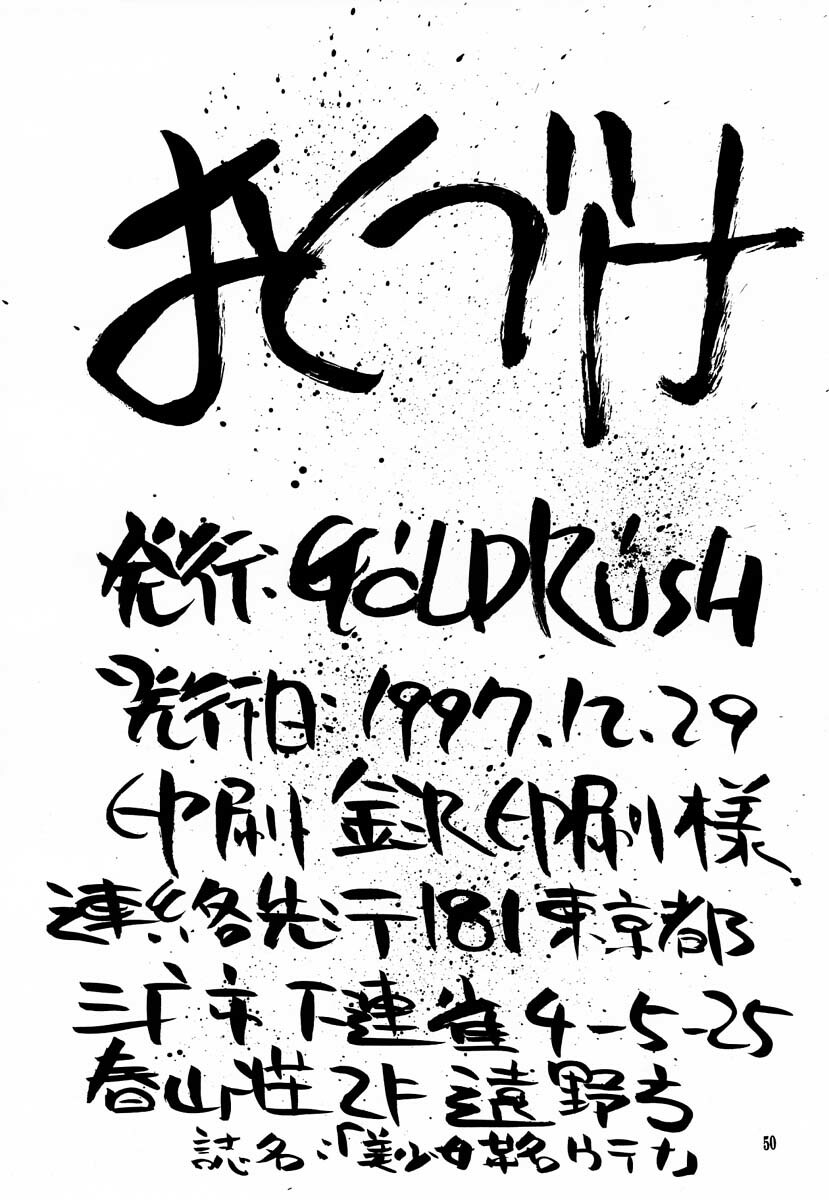 おくづけ
発行:GOLDRUSH
発行日:1997.12.29
印刷 金沢印刷様
連絡先:〒181東京都
三广市下連雀4-5-25
春山荘2F 遠野方
誌名:「美少女革命ウテナ」
50